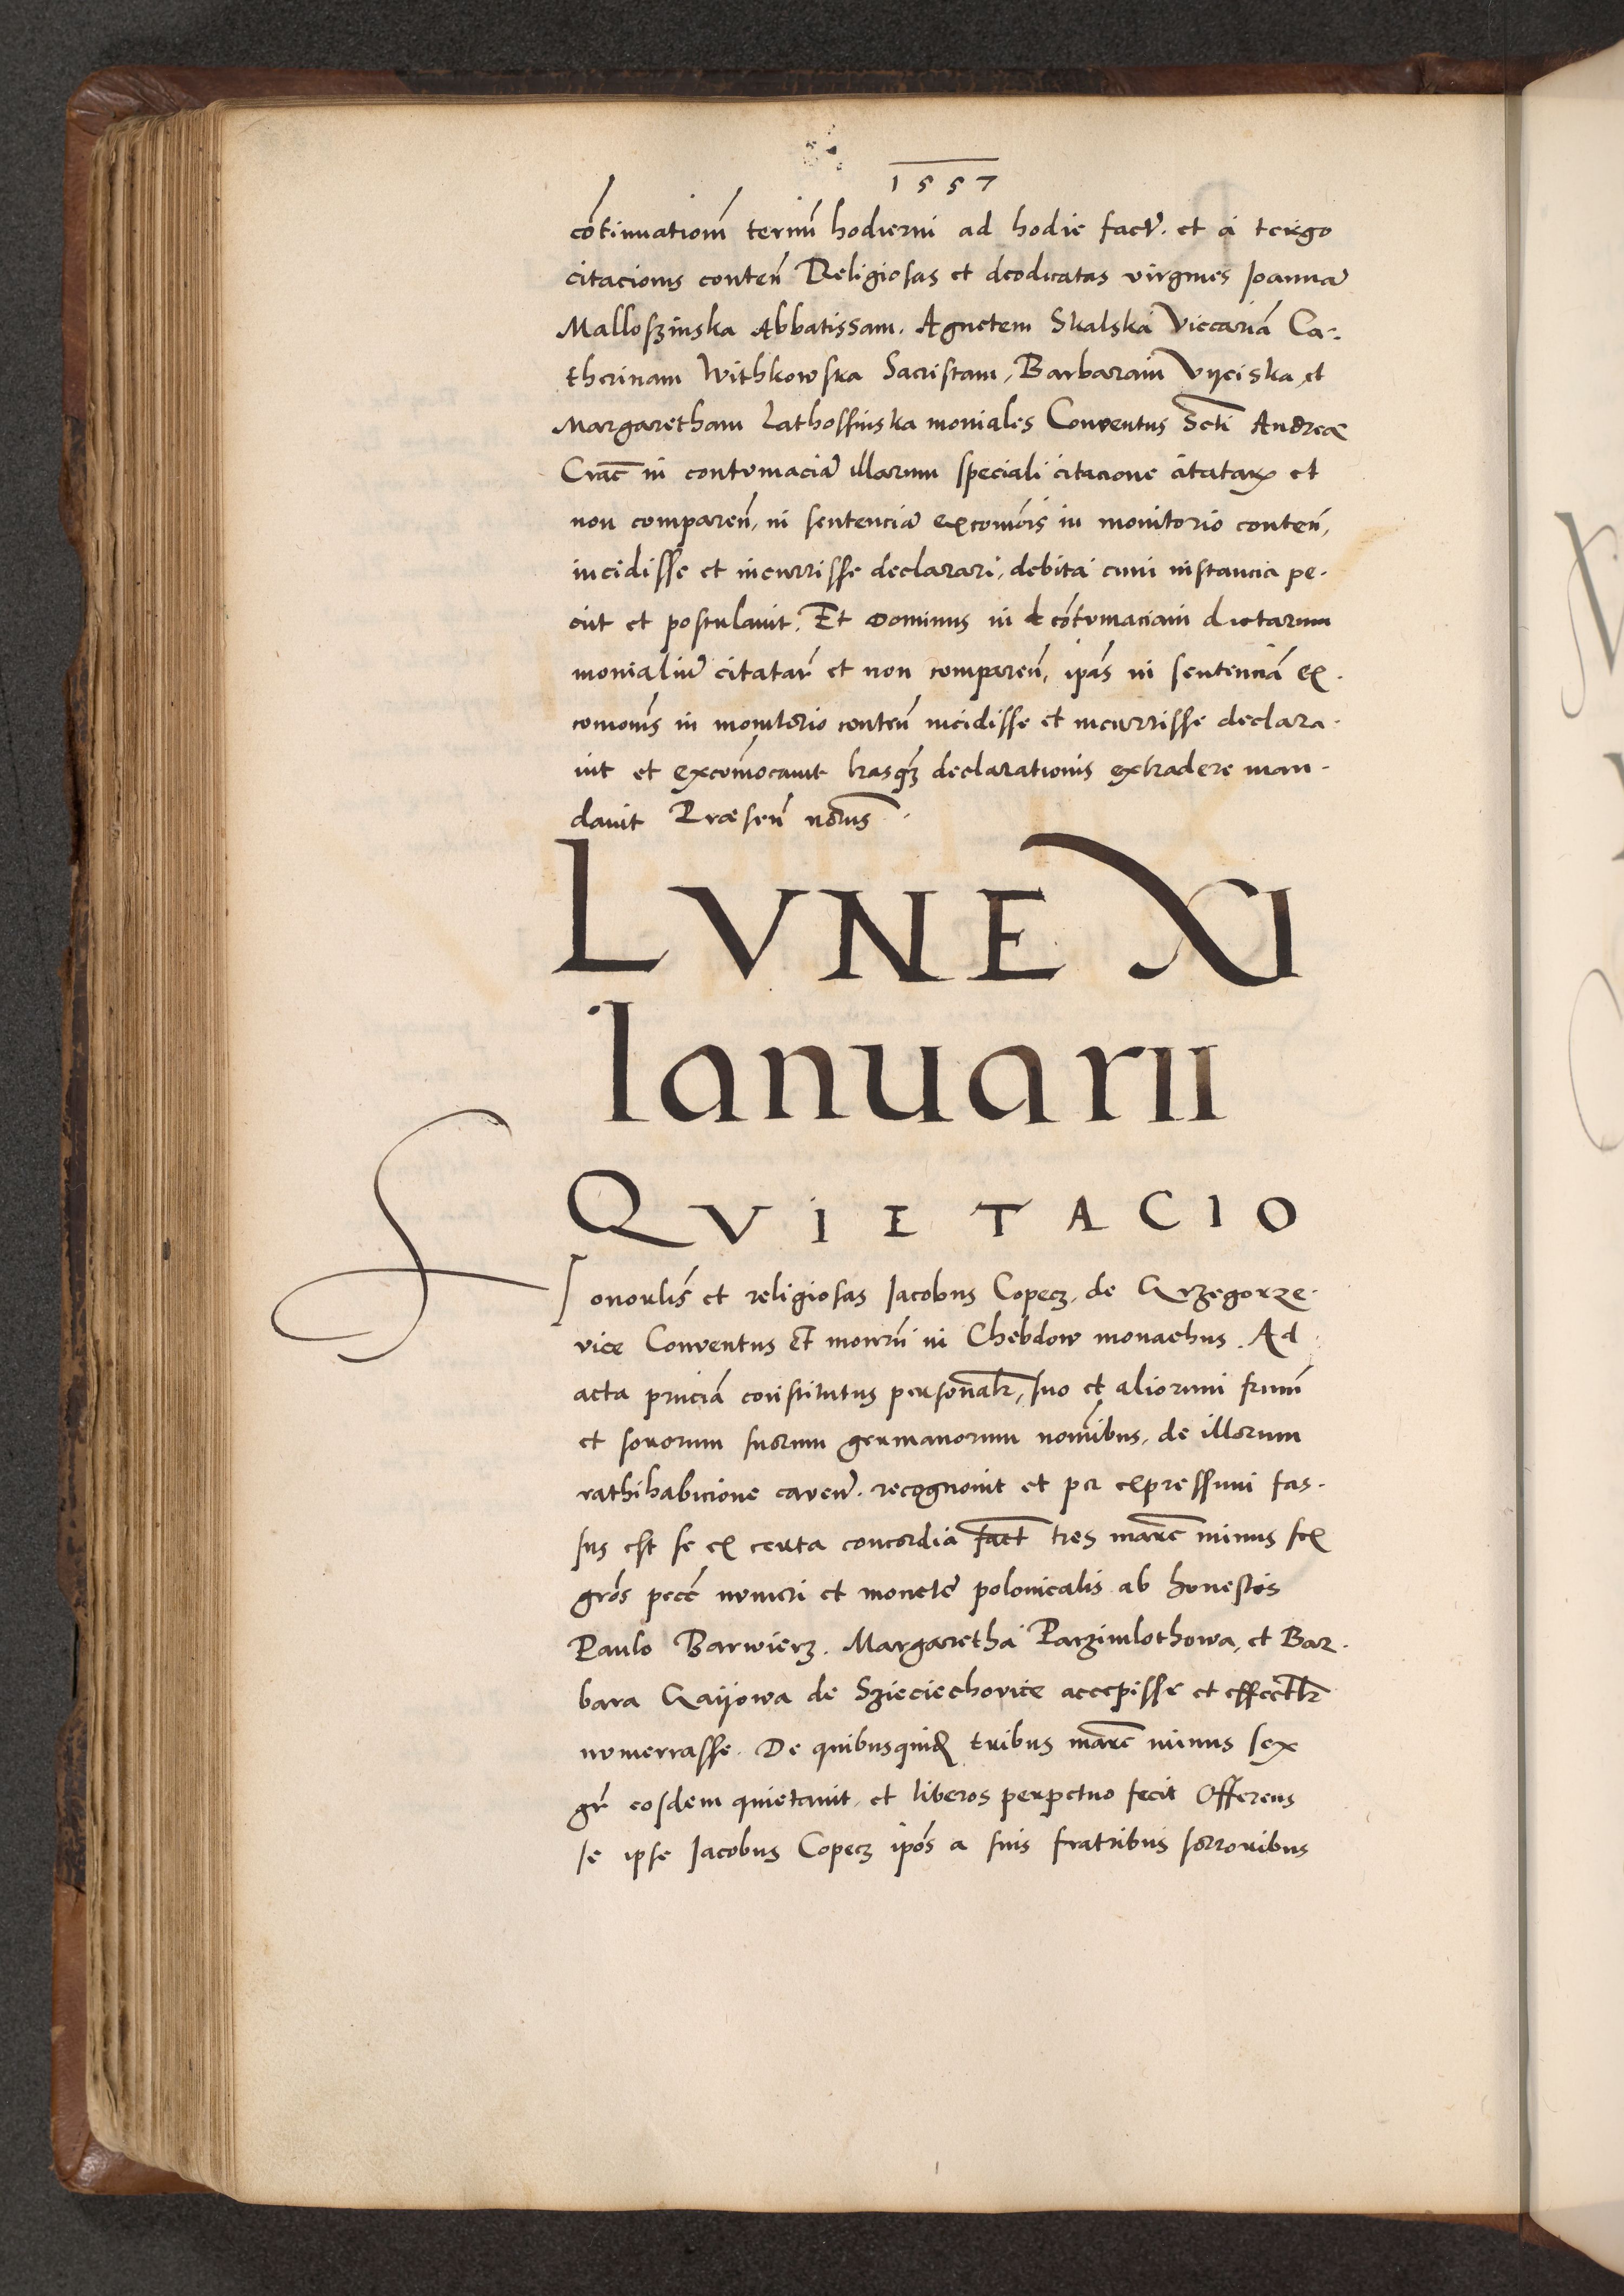 1557
cõtinuationẽ termĩ hodierni ad hodie factã. et á tergo
citacionis conteñ Religiosas et deodicatas virgines Joannã
Malloszinska Abbatissam. Agnetem Skalská Viccariã Ca-
therinam Withkowska Sacristam, Barbaram Vyciska, et
Margaretham Lathossinska moniales Conventus Scti Andreæ
Crac in contumaciã illarum speciali citacione citatarꝝ et
non compareñ, in sentenciã excomõis in monitorio conteñ,
incidisse et incurrisse declarari, debitá cum instancia pe-
ciit et postulavit. Et Dominus in cõtumaciam dictarum
monialiũ citatarũ et non compareñ, ipãs in sentenciã ex-
comõis in monitorio conteñ incidisse et incurrisse declara-
vit et excõmocavit lrasqꝫ declarationis extradere man-
davit Præseñ notis.
LVNE XI
Ianuarii
QVIETACIO
Honorlis et religiosas Jacobus Copecz, de Grzegorze-
vice Conventus et monrũ in Chebdow monachus. Ad
acta pñciã constitutus personalr, suo et aliorum frũm
et sororum suorum germanorum nomĩbus, de illorum
rathihabicione caveñ. recognovit et per expressum fas-
sus est se ex certa concordiá fact tres marc minus sex
grõs pecč numeri et monete polonicalis ab honestis
Paulo Barwierz. Margarethá Parzimlothowa, et Bar-
bara Gaijowa de Szieciechovice accepisse et effectlr
numerasse. De quibusquid tribus marc minus sex
gr eosdem quietavit, et liberos perpetuo fecit Offerens
se ipse Jacobus Copecz ipõs a suis fratribus sorroribus